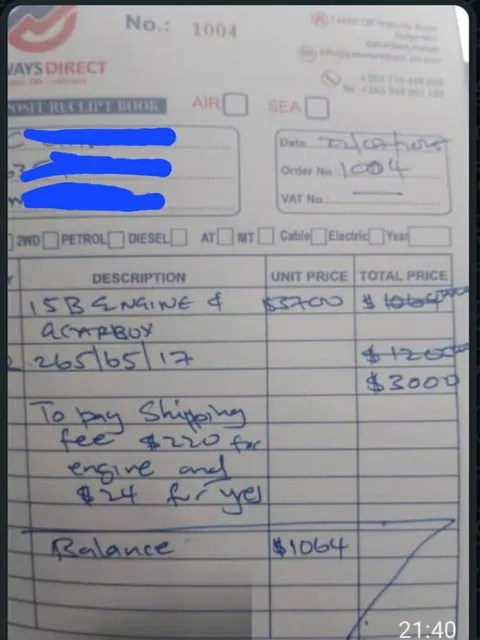 No.: 1004
WAYS DIRECT
OSIT RECEIPT BOOK
AIR SEA
Date
Order No. 1004
VAT No.
2WD PETROL DIESEL AT MT Cable Electric Year
DESCRIPTION UNIT PRICE TOTAL PRICE
15B ENGINE & $3700 $1064
GEARBOX
265/65/17 $1200
$3000
To pay Shipping
fee $220 for
engine and
$24 for
Balance $1064
21:40